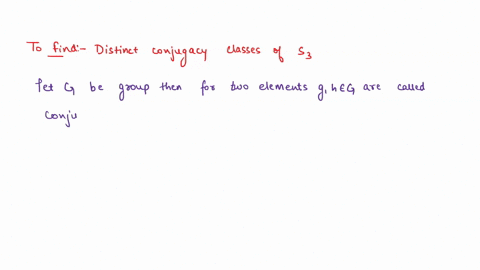 To find:- Distinct conjugacy classes of S3
let G be group then for two elements g, h ∈ G are called
conju